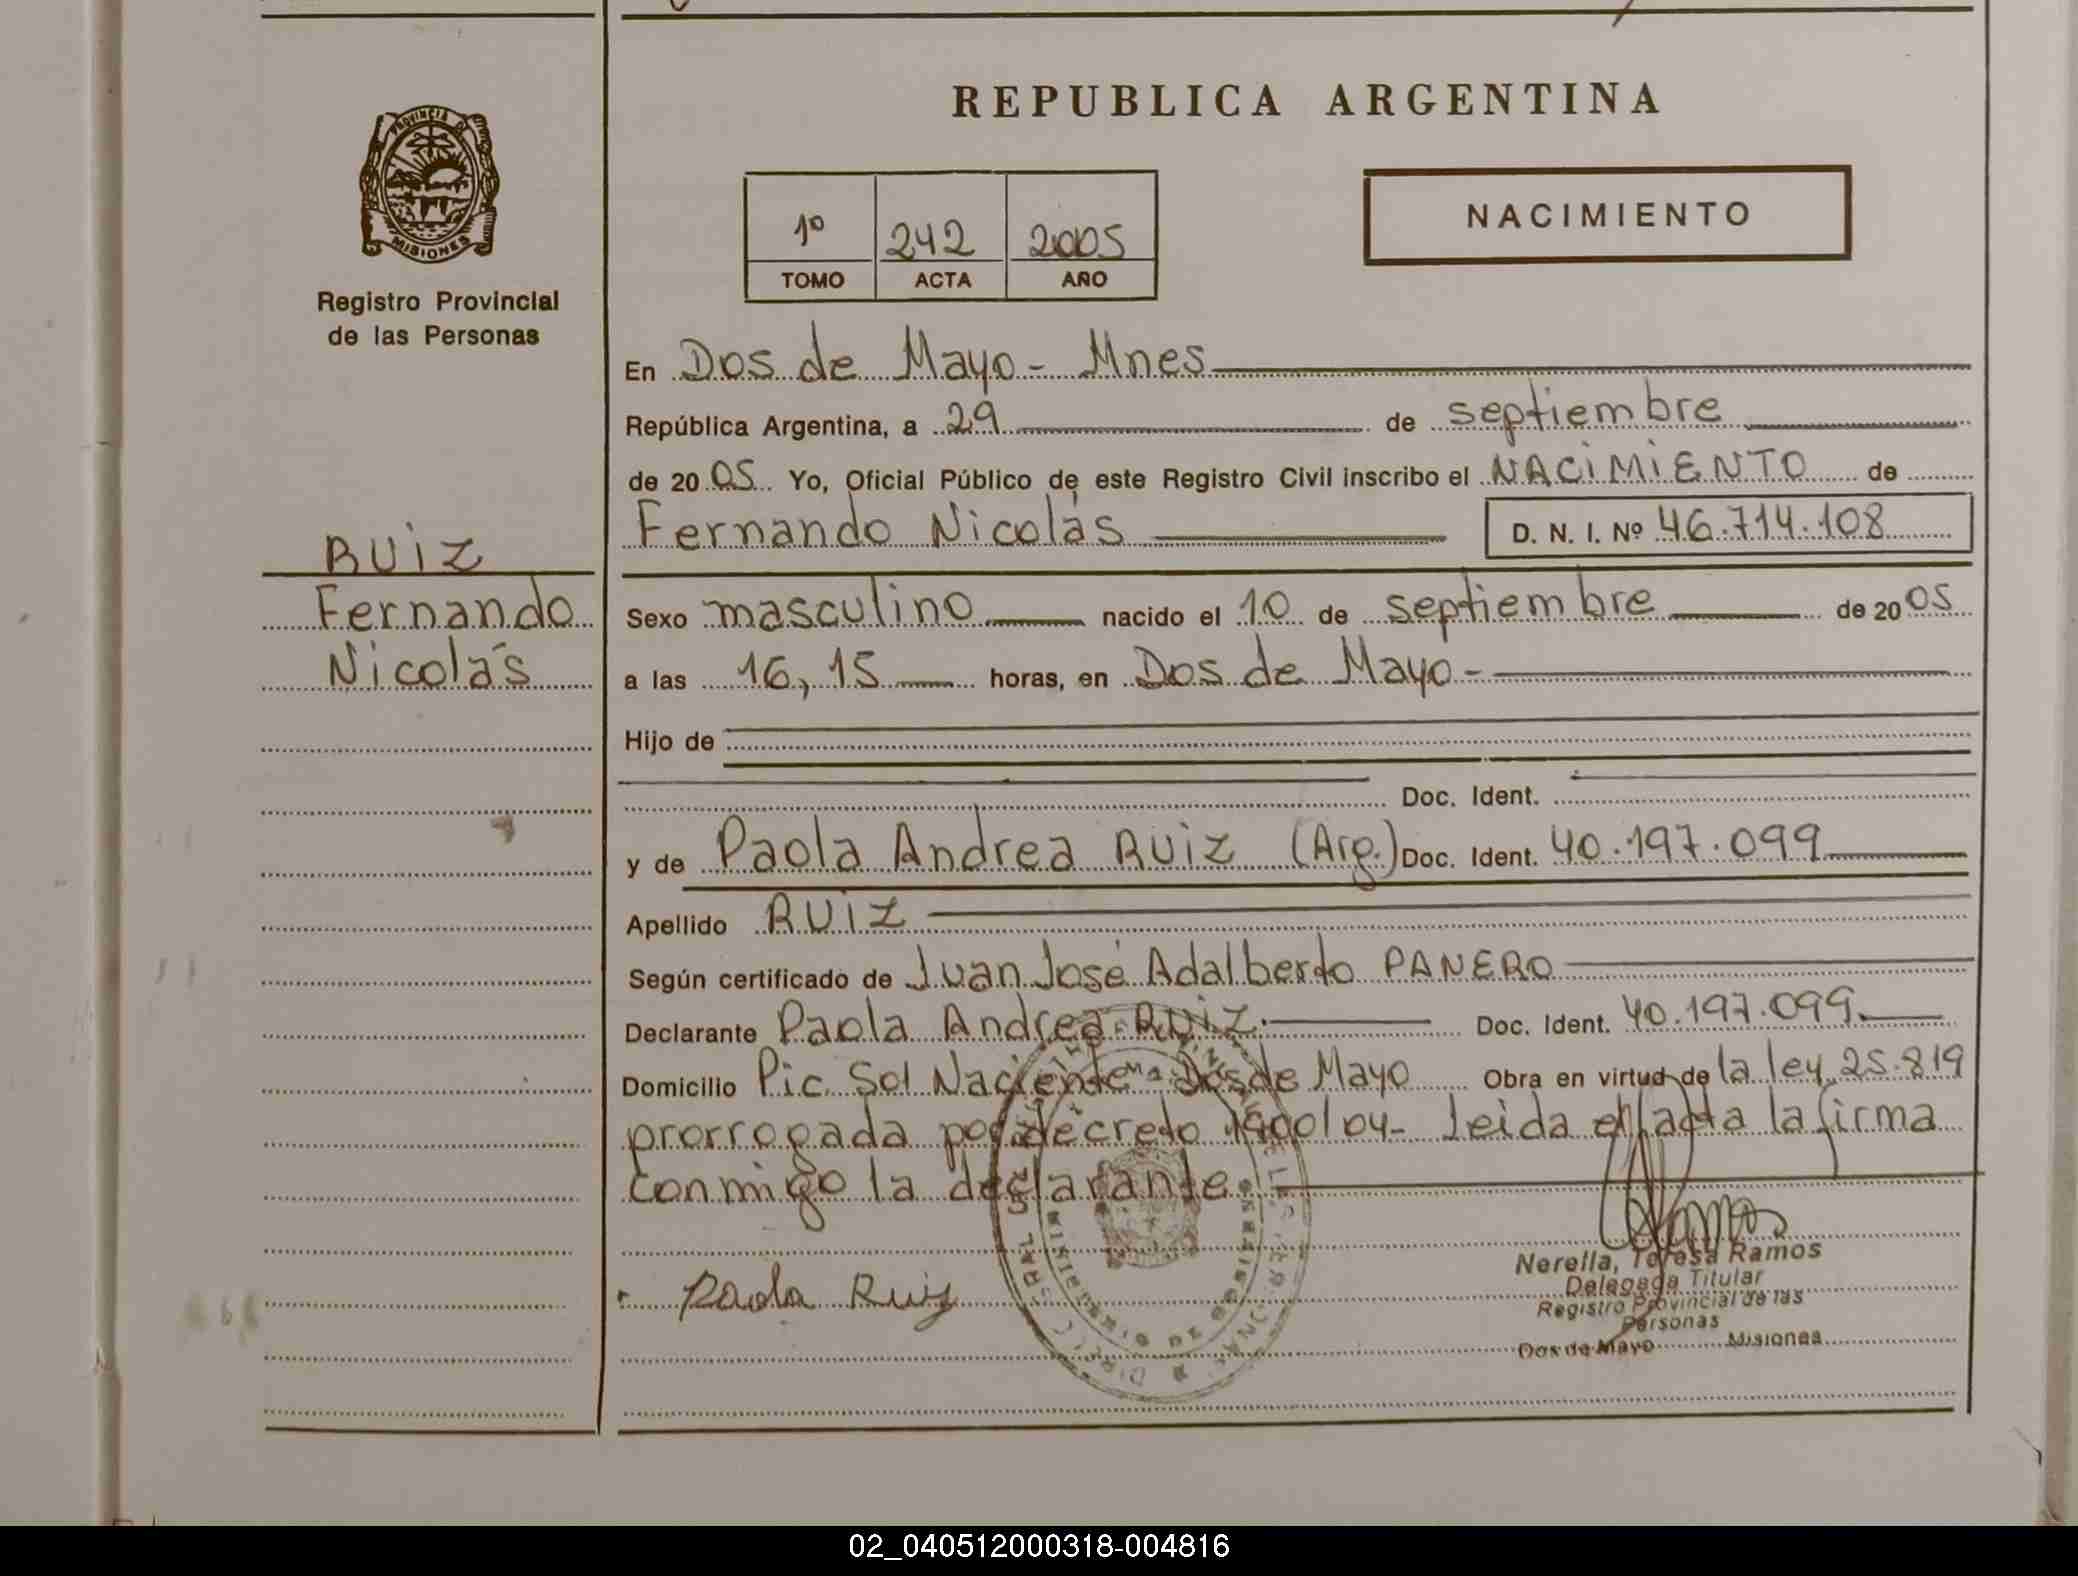 REPUBLICA ARGENTINA
PROVINCIA DE MISIONES
Registro Provincial
de las Personas
1º 242 2005
TOMO ACTA AÑO
NACIMIENTO
En Dos de Mayo - Mnes
República Argentina, a 29 de septiembre
de 20 05 Yo, Oficial Público de este Registro Civil inscribo el NACIMIENTO de
Fernando Nicolás D. N. I. Nº 46.714.108
RUIZ
Fernando
Nicolás
Sexo masculino nacido el 10 de septiembre de 20 05
a las 16,15 horas, en Dos de Mayo -
Hijo de
Doc. Ident.
y de Paola Andrea RUIZ (Arg.) Doc. Ident. 40.197.099
Apellido RUIZ
Según certificado de Juan José Adalberto PANERO
Declarante Paola Andrea RUIZ. Doc. Ident. 40.197.099.
Domicilio Pic. Sol Naciente Dos de Mayo Obra en virtud de la ley 25.819
prorrogada por decreto 1900/04- Leida el acta la firma
conmigo la declarante.
Paola Ruiz
Nerella, Teresa Ramos
Delegada Titular
Registro Provincial de las
Personas
Dos de Mayo Misiones
02_040512000318-004816